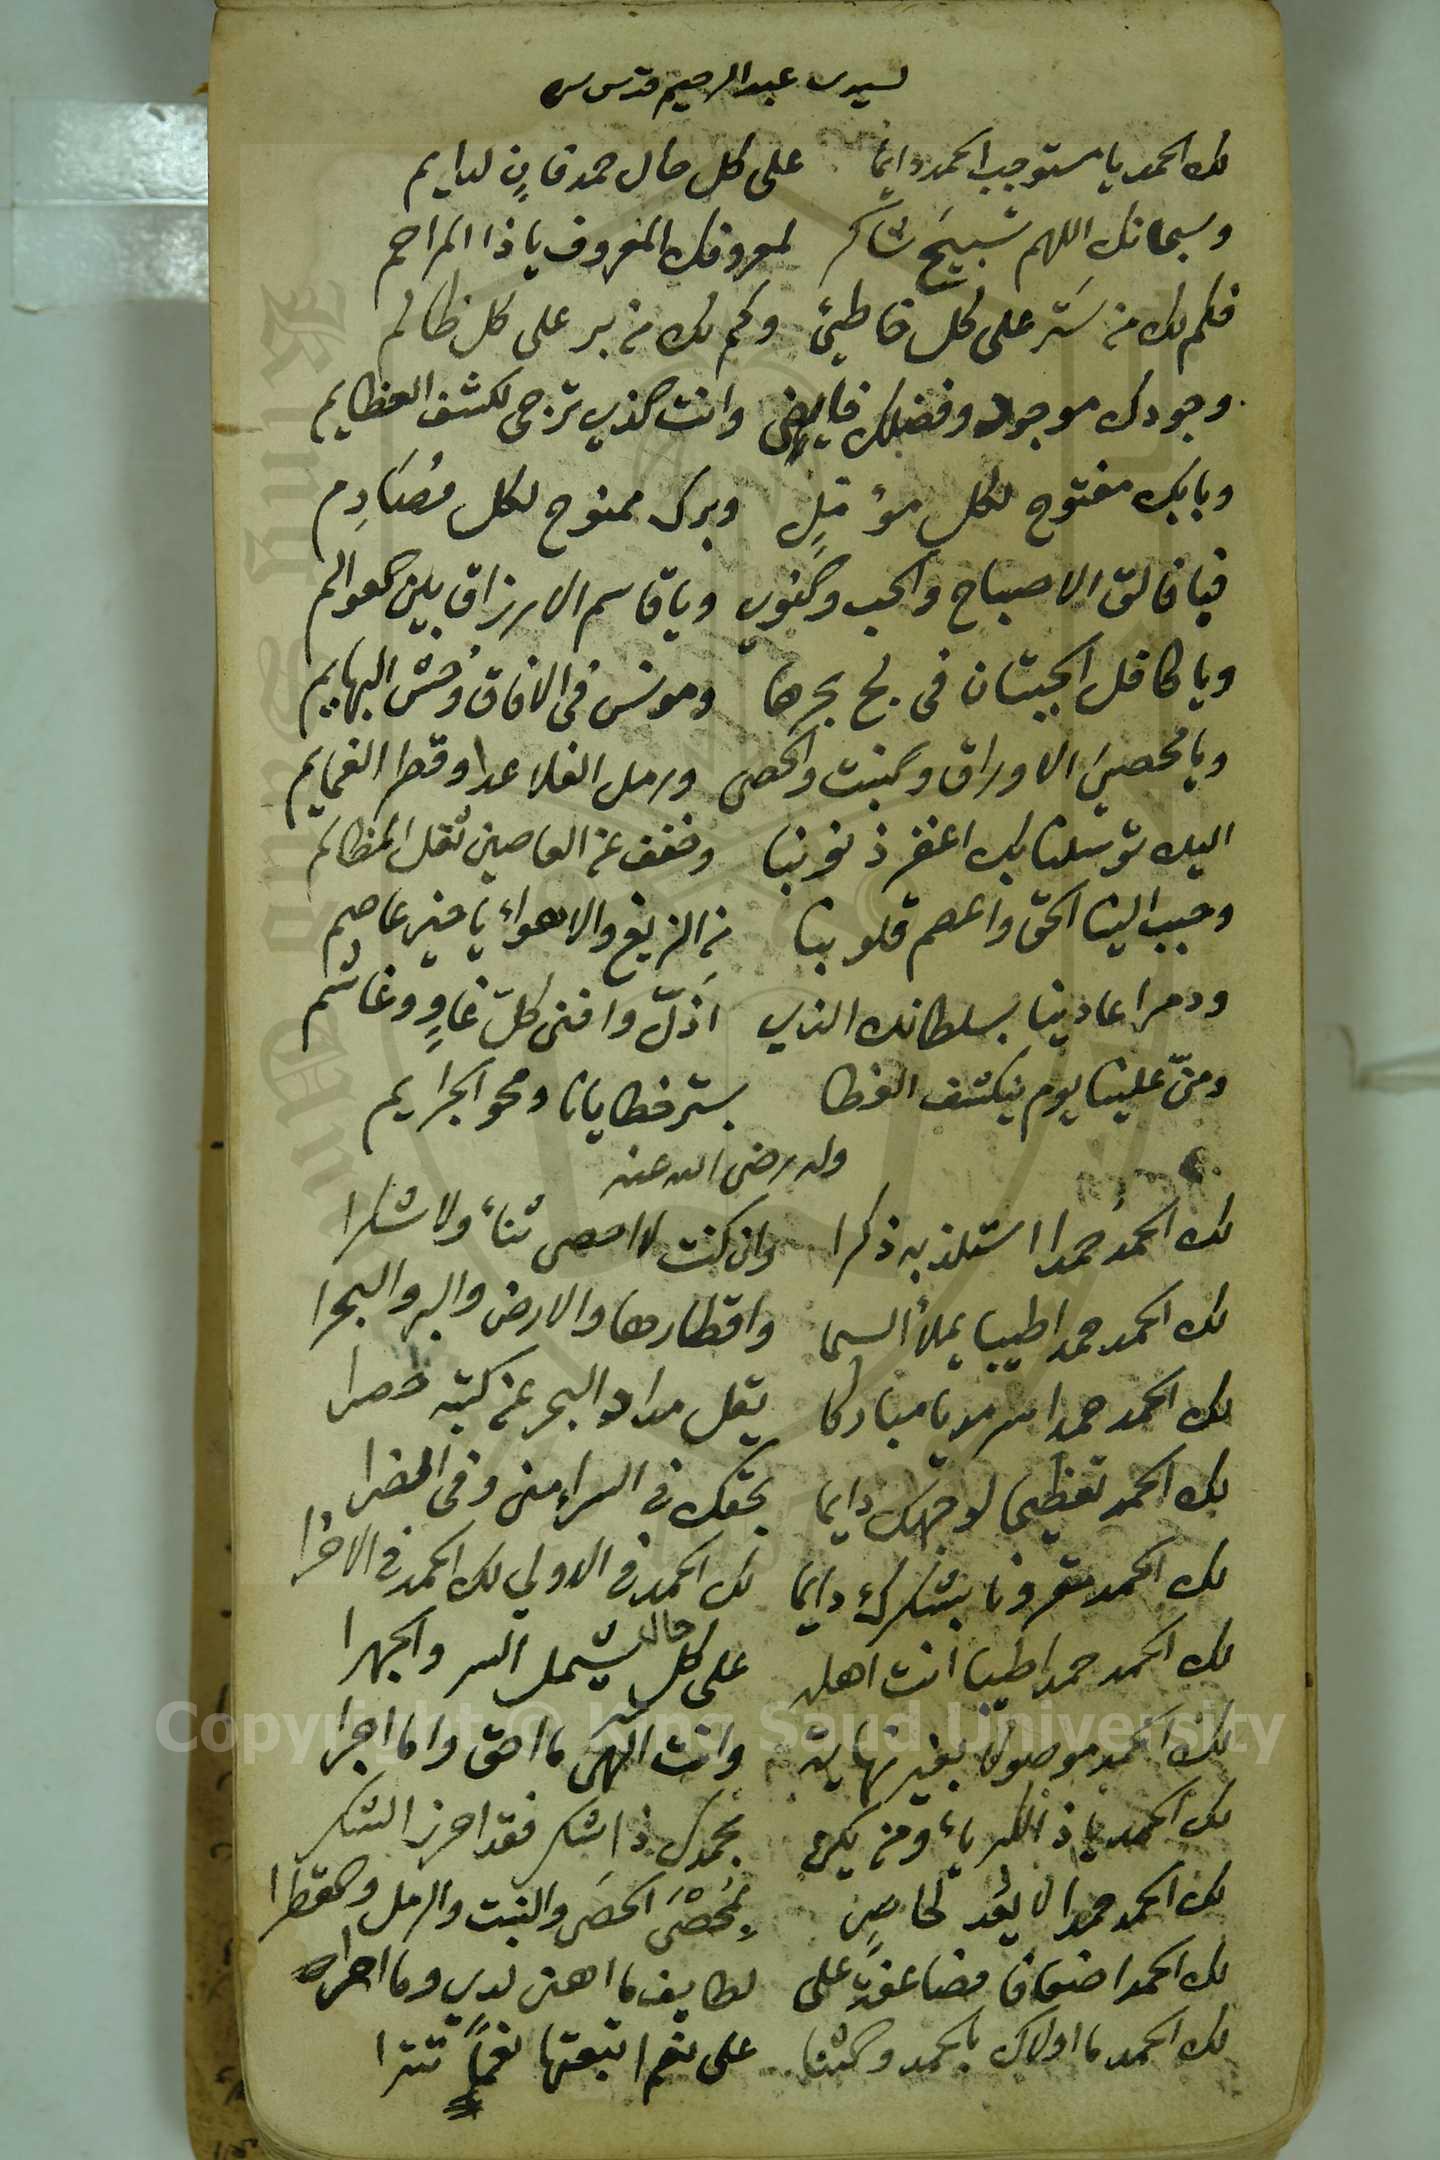 لسيدي عبد الرحيم قدس سره
لك الحمد يا مستوجب الحمد دايما على كل حال حمد فانٍ لدايم
وسبحانك اللهم تسبيحَ شاكر لمعروفك المعروف يا ذا المراحم
فكم لك من سَتر على كل خاطئ وكم لك من بر على كل ظالم
وجودك موجود وفضلك فايض وانت الذي ترجى لكشف العظايم
وبابك مفتوح لكل مؤملٍ وبرك ممنوح لكل مُصَادِم
فيا فالق الاصباح والحب والنوي ويا قاسم الارزاق بين العوالم
ويا كافل الحيتان في لج بحرها ومونس في الافاق وُحش البهايم
ويا محصيَ الاوراق والنبت والحصى ورمل الفلا عدا وقطر الغمايم
اليك توسلنا بك اغفر ذنوبنا وخفف عن العاصين ثقل المظالم
وحبب الينا الحق واعصم قلوبنا من الزيغ والاهواء يا خير عاصم
ودمر اعادينا بسلطانك الذي اذلّ وافنى كلّ غاوٍ وغاشم
ومنّ علينا يوم ينكشف الغطا بستر خطايانا ومحو الجرايم
وله رضي الله عنه
لك الحمدُ حمدا استلذ به ذكرا وان كنت لا احصى ثناء ولا شكرا
لك الحمد حمدا طيبا يملأ السما واقطارها والارض والبر والبحرا
لك الحمد حمدا سرمديا مباركا يقل مداد البحر عن كتبه حصرا
لك الحمد تعظيما لوجهك دايما بحقك في السراء مني وفي الضرا
لك الحمد مقرونا بشكرك دايما لك الحمد في الاولي لك الحمد في الاخرا
لك الحمد حمدا طيبا انت اهله على كل حال يشمل السر والجهرا
لك الحمد موصولا بغير نهاية وانت الهي ما احق وما احرا
لك الحمد يا ذا الكبرياء ومن يكن بحمدك ذا شكر فقد احرز الشكر
لك الحمد حمدا لا يُعد لحاصِرٍ يُحْصَى الحصَى والنبت والرمل والقطرا
لك الحمد اضعافا مضاعفة على لطايف ما احلى لدي وما امرا
لك الحمد ما اولاك بالحمد والثنا على نعم اتبعتها نعماً تترا
Copyright © King Saud University